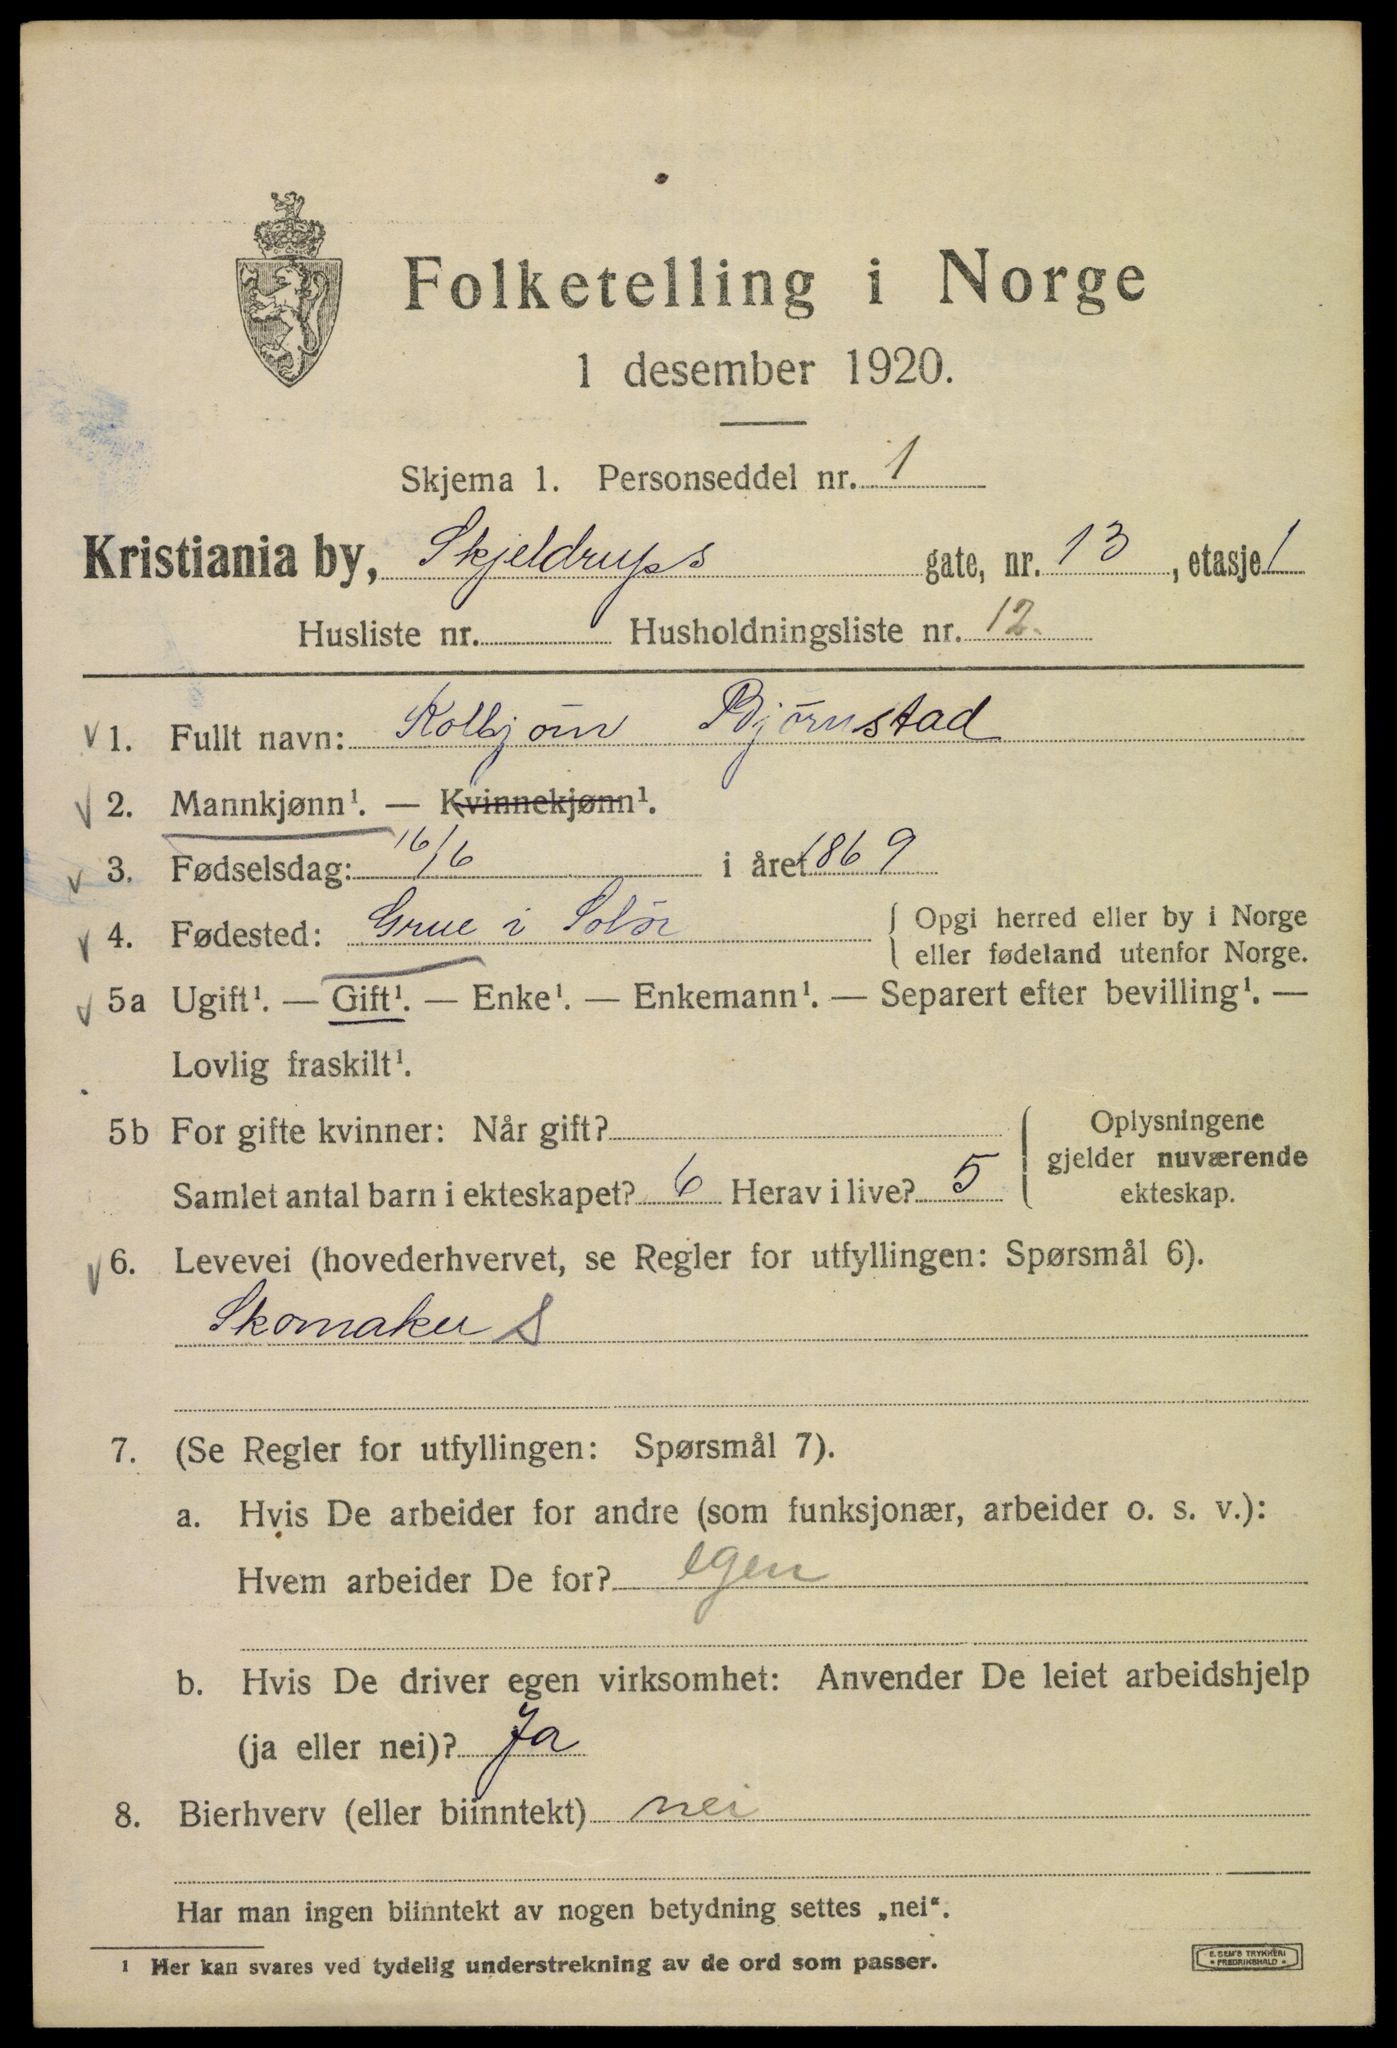 Folketelling i Norge
1 desember 1920.
Skjema 1. Personseddel nr. 1
Kristiania by, Skjeldrups gate, nr. 13, etasje 1
Husliste nr. Husholdningsliste nr. 12.
1. Fullt navn: Kolbjørn Bjørnstad
2. Mannkjønn¹. — Kvinnekjønn¹.
3. Fødselsdag: 16/6 i året 1869
4. Fødested: Grue i Solør { Opgi herred eller by i Norge
eller fødeland utenfor Norge.
5a Ugift¹. — Gift¹. — Enke¹. — Enkemann¹. — Separert efter bevilling¹. —
Lovlig fraskilt¹.
5b For gifte kvinner: Når gift? { Oplysningene
gjelder nuværende
ekteskap.
Samlet antal barn i ekteskapet? 6 Herav i live? 5
6. Levevei (hovederhvervet, se Regler for utfyllingen: Spørsmål 6).
Skomaker S
7. (Se Regler for utfyllingen: Spørsmål 7).
a. Hvis De arbeider for andre (som funksjonær, arbeider o. s. v.):
Hvem arbeider De for? egen
b. Hvis De driver egen virksomhet: Anvender De leiet arbeidshjelp
(ja eller nei)? Ja
8. Bierhverv (eller biinntekt) nei
Har man ingen biinntekt av nogen betydning settes „nei“.
¹ Her kan svares ved tydelig understrekning av de ord som passer.
E. SEM'S TRYKKERI
• FREDRIKSHALD •